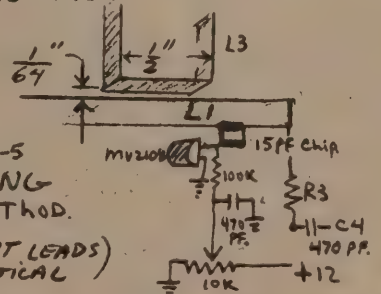 1/64"
1/2"
L3
L1
-5
NG
THOD.
T LEADS)
TICAL
15 PF Chip
100K
470
PF.
R3
C4
470 PF.
10K
+12